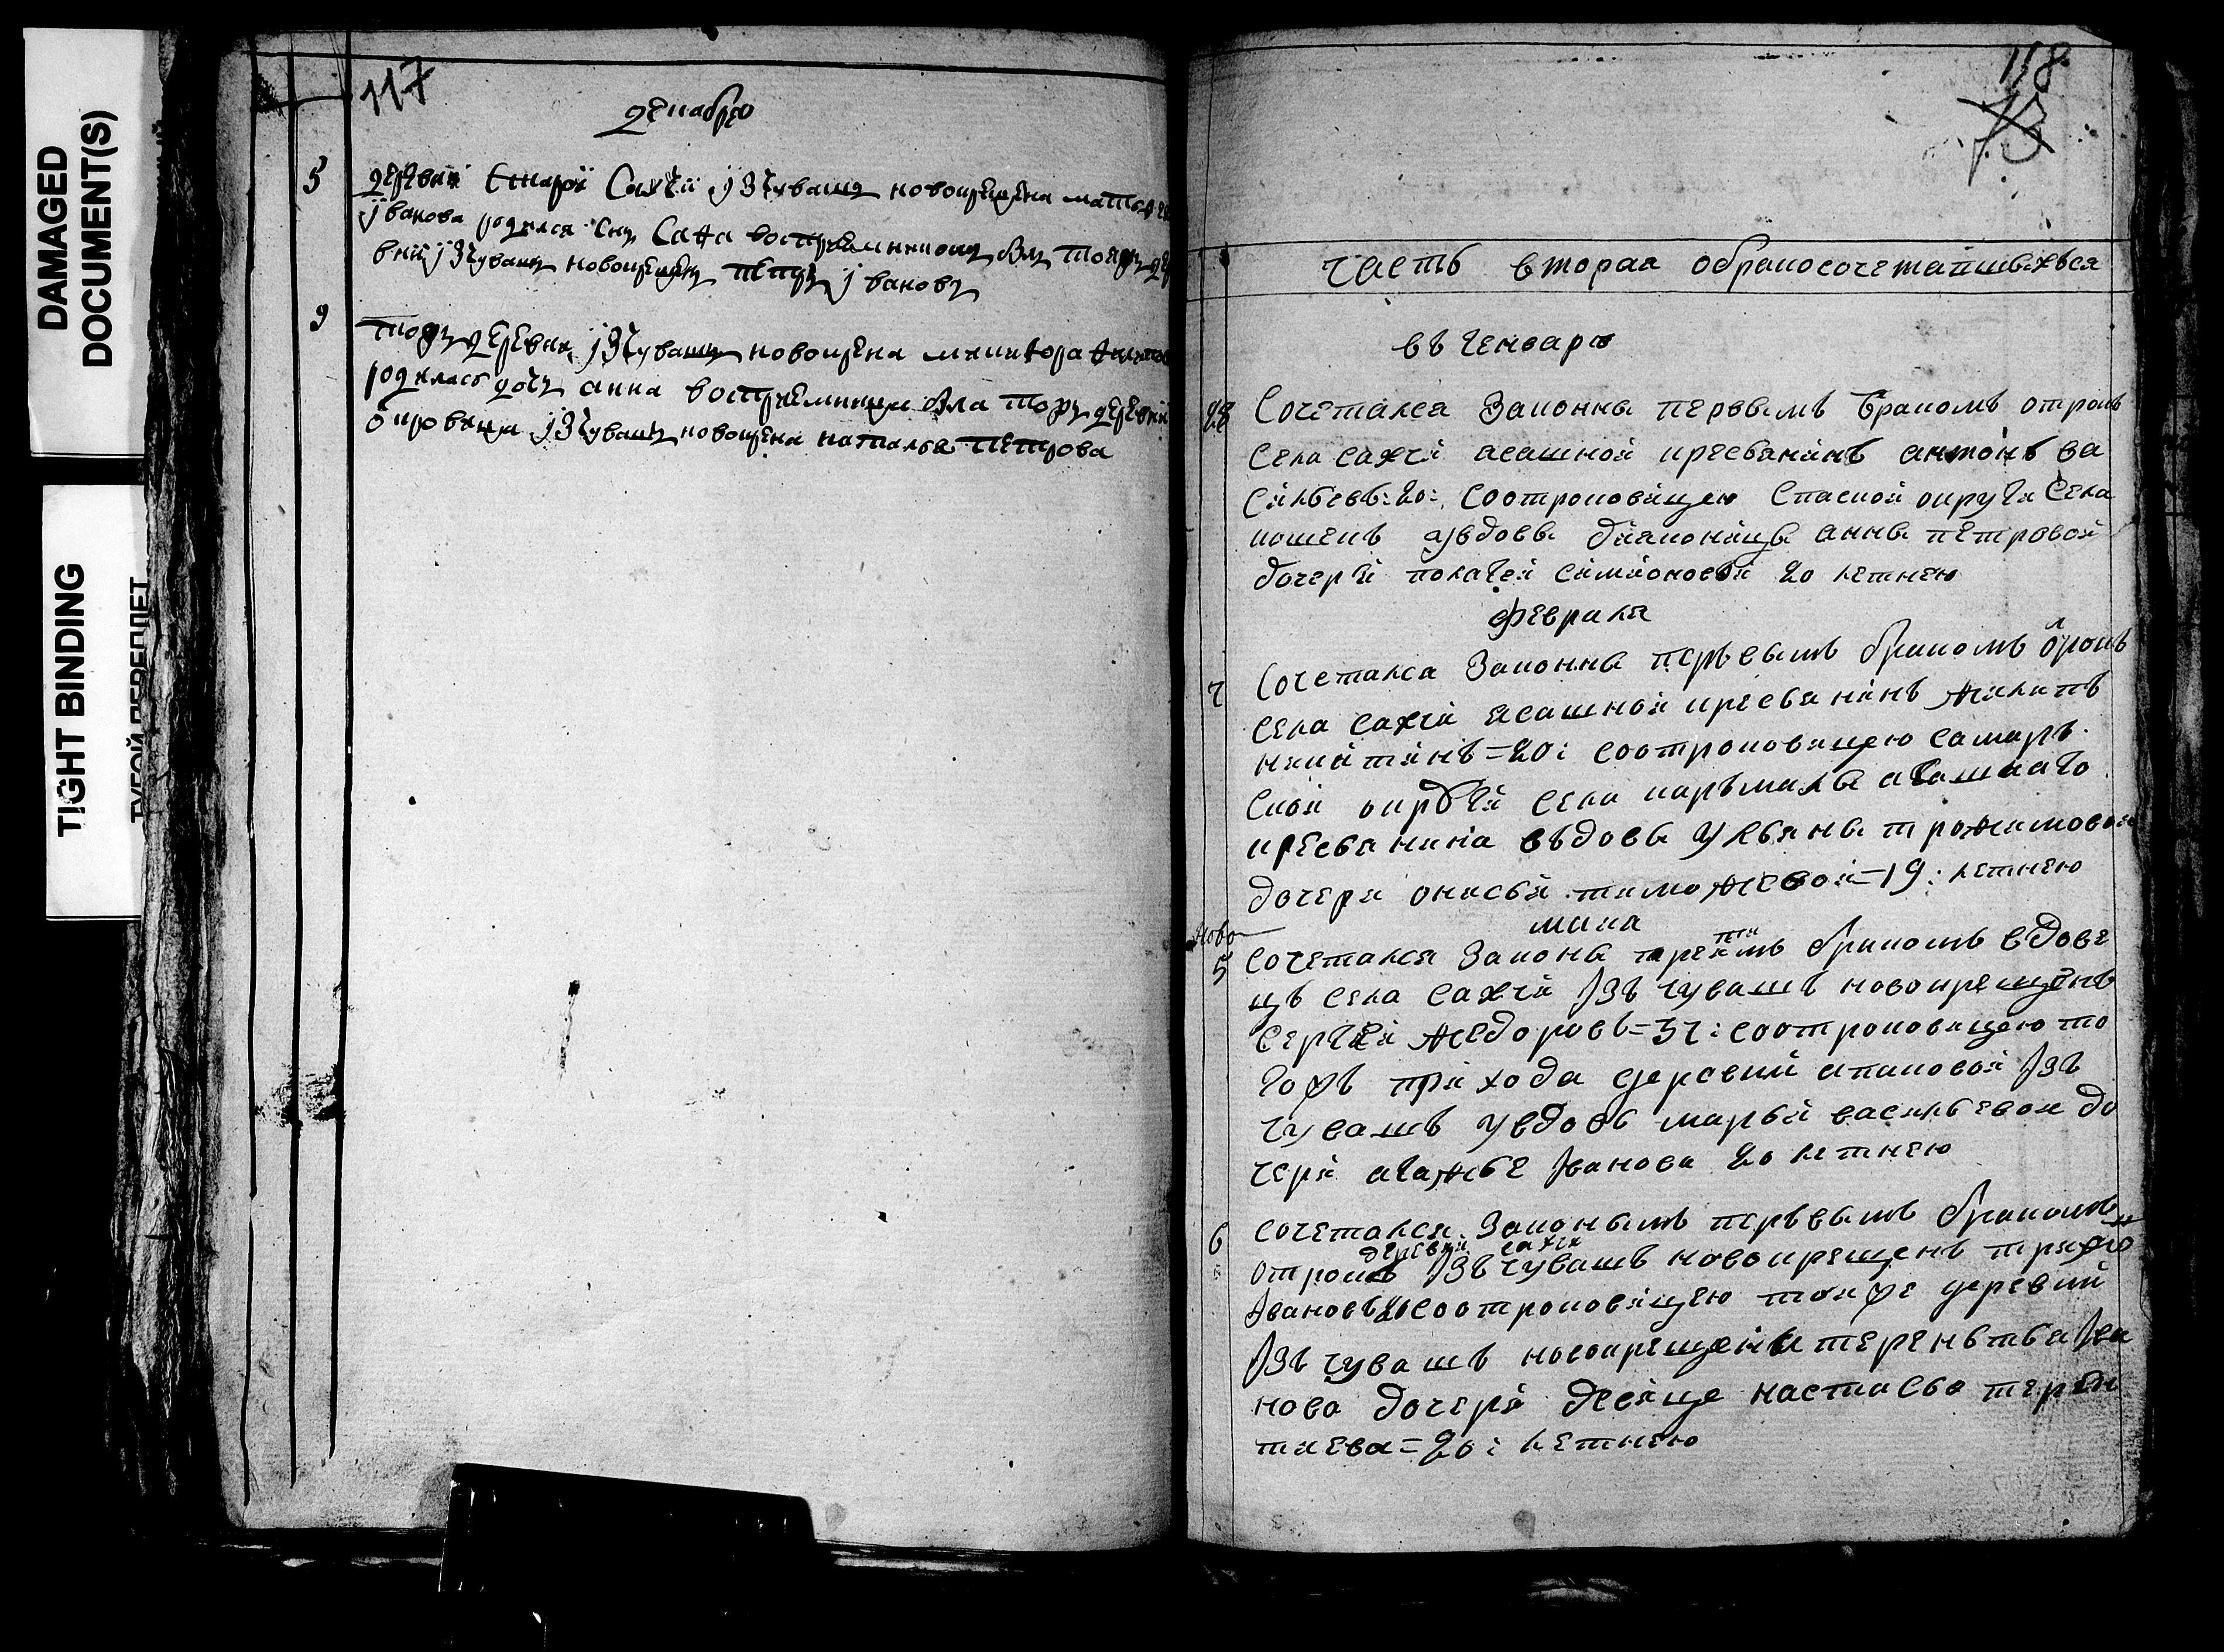 DAMAGED
DOCUMENT(S)
TIGHT BINDING
ТУГОЙ ПЕРЕПЛЕТ
117
декабрь
5
деревни Старой Сахчи изчувашъ новокрещена
Иванова родился снъ Сава восприемникомъ былъ
вни изчувашъ новокрещенъ петръ Ивановъ
9
тожъ деревни изчувашъ новокрена никифора
родилась дочь анна восприемница была тожъ деревни
изчувашъ новокрена наталья Петрова
118
73
часть вторая обракосочетавшихъся
въ генваръ
28
Сочетался законнымъ первымъ бракомъ отрокъ
села сахчи ясашной кресьянинъ антонъ ва
сильевъ: 20: соотроковицею Спаской округи села
кошекъ увдовы дияконицы анны петровой
дочерѣй пологеи симионовой 20 летнею
февраля
7
Сочетался законны перъвымъ бракомъ отрокъ
села сахчи ясашной кресьянинъ филипъ
никитинъ = 20: соотроковицею самаръ
ской округи села каръмалы асашнаго
кресьянина въдовы ульяны трофимовой
дочери онисьи тимофеевой = 19: летнею
ново
маиа
5
сочетался законы третимъ бракомъ вдове
цъ села сахчи Iзъ чувашъ новокрещенъ
Сергѣи федоровъ = 37: соотроковицею то
гожъ прихода деревни Iзъ
чувашъ увдовъ марьи васильевои до
чери агафье Iванова 20 летнею
6
сочетался законымъ перъвымъ бракомъ
деревни сахчи
отрокъ Iзъ чувашъ новокрещенъ
Iвановъ 20 соотроковицею тоя же деревни
Iзъ чувашъ новокрещены терентья Iва
нова дочери девице настасьо терен
тиева = 20: летнею